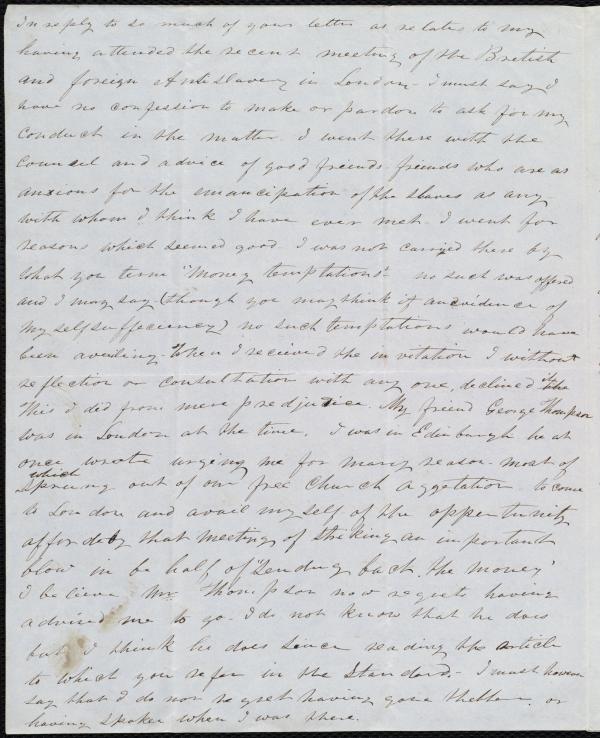 In reply to so much of your letter as relates to my
having attended the recent meeting of the British
and foreign Antislavery in London - I must say I
have no confession to make or pardon to ask for my
conduct in the matter. I went there with the
council and advice of good friends - friends who are as
anxious for the emancipation of the slaves as any
with whom I think I have ever met. I went for
reasons which seemed good. I was not carried there by
what you term "money temptations" no such was offered
and I may say (though you may think it an evidence of
my self sufficiency) no such temptations would have
been availing. When I received the invitation I without
reflection or consultation with any one, declined it
this I did from mere predjudice. My friend George Thompson
was in London at the time. I was in Edinburgh he at
once wrote urging me for many reason - most of
which
sprung out of our free church aggetation to come
to London and avail my self of the oppertunity
afforded by that meeting of striking an important
blow in be half of "Sending back the money"
I believe Mr Thompson now regrets having
advised me to go. I do not know that he does
but I think he does since reading the article
to which you refer in the Standard - I must however
say that I do not regret having gone thether, or
having spoken when I was there.